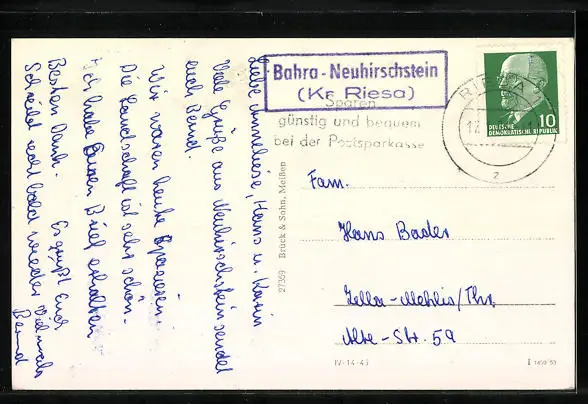 Liebe Anneliese, Hans u. Karin
Viele Grüße aus Neuhirschstein sendet
euch Bernd.
Wir waren heute spazieren.
Die Landschaft ist sehr schön.
Ich habe Euren Brief erhalten
Besten Dank. Es grüßt Euch
Schreibt recht bald wieder vielmals
Bernd
Bahra-Neuhirschstein
(Kr. Riesa)
Sparen
günstig und bequem
bei der Postsparkasse
RIESA
2
10
DEUTSCHE
DEMOKRATISCHE REPUBLIK
27359 Brück & Sohn, Meißen
Fam.
Hans Bader
Zella-Mehlis/Thr.
Alte-Str. 59
IV-14-45